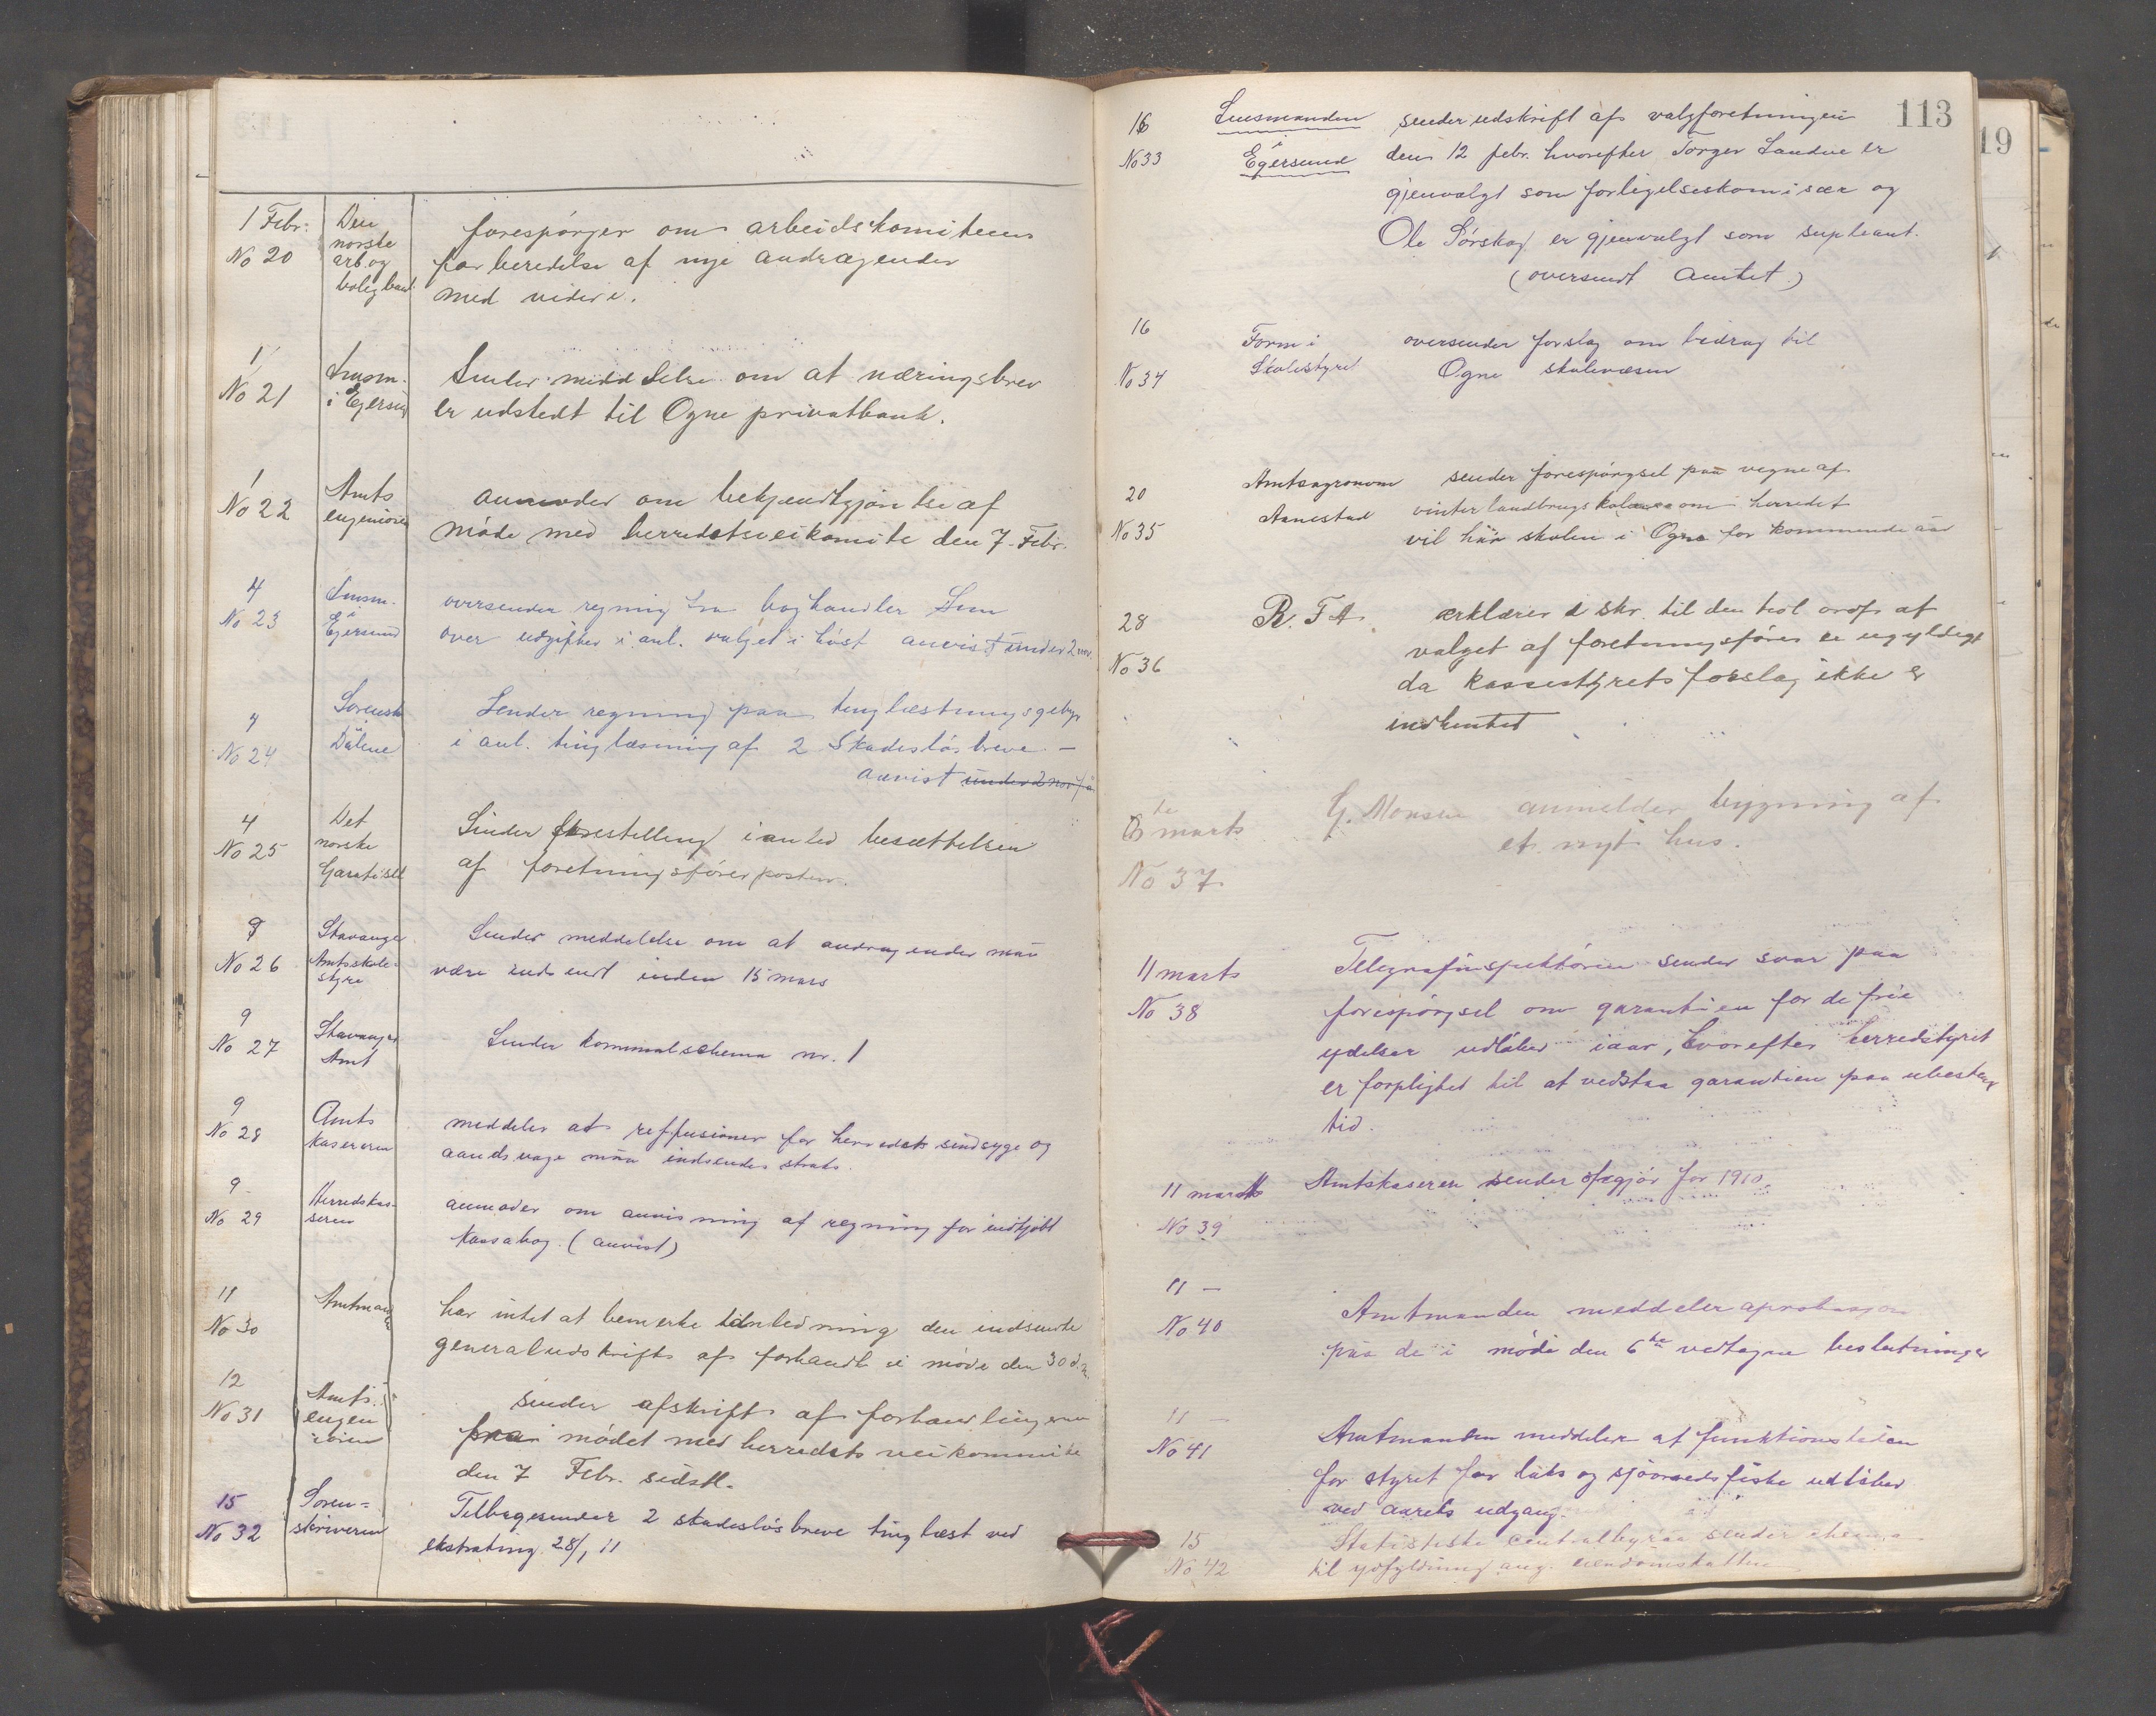 1 Febr. Den
norske
No 20 arb. og
boligbank
forespörger om arbeidskomiteens
forberedelse af nye andragender
med videre.
1 Lensm.
No 21 i Egersund
Sender meddelse om at næringsbrev
er udstedt til Ogne privatbank.
1 Amts
No 22 engeniören
anmoder om bekjendtgjörelse af
möde med herredetsveikomite den 7. Febr.
4 Lensm.
i
No 23 Egersund
oversender regning fra boghandler
over udgifter i anl. valget i höst anvist under 2 nov.
4 Sorensk
No 24 Dalene
Sender regning paa tinglæsningsgebyr
i anl. tinglæsning af 2 Skadeslösbreve. —
anvist under 2 nov
4 Det
norske
No 25
Sender forestelling i anled besættelsen
af foretningsförerposten.
9 Stavanger
No 26 Amtsskole-
styre
Sender meddelelse om at andragender maa
være indsendt inden 15 mars
9 Stavanger
No 27 Amt
Sender kommunalschema nr. 1
9 Amts
No 28 kasereren
meddeler at reffusioner for herredets sindsyge og
aandsvage maa indsendes straks.
9 Herredskas-
No 29 seren
anmoder om anvisning af regning for indkjöbt
kassabog. (anvist)
11 Amtmanden
No 30
har intet at bemerke i anledning den indsendte
generaludskrift af forhandl. i möde den 30 d.
12 Amts.
No 31 engen
iören
sender afskrift af forhandlingerne
paa mödet med herredets veikommite
den 7 Febr. sidstl.
15 Soren-
No 32 skriveren
Tilbagesender 2 skadeslösbreve tinglæst ved
ekstrating 28/1 11
113
19
16 Lensmanden sender udskrift af valgforetningen
i
No 33 Egersund den 12 febr. hvorefter Torger Landve er
gjenvalgt som forligelseskomisær og
Ole Sörskog er gjenvalgt som supleant.
(oversendt Amtet)
16 Form i oversender forslag om bidrag til
No 34 Skolestyret Ogne skolevæsen
20 Amtsagronom sender forespörgsel paa vegne af
Aanestad vinterlandbrugsskolen om herredet
No 35 vil ha skolen i Ogne for kommende aar
28 R. F A. erklærer i skr. til den hol ordf. at
valget af foretningsförer er ugyldigt
No 36
da kassestyrets forslag ikke er
indhentet
8 de marts G. Monsen anmelder bygning af
et nyt hus.
No 37
11 marts Telegrafinspektören sender svar paa
No 38 forespörgsel om garantien for de frie
ydelser udlöber iaar, hvorefter herredstyret
er forpligtet til at vedstaa garantien paa ubestemt
tid.
11 marts Amtskaseren sender opgjör for 1910.
No 39
11 — Amtmanden meddeler aprobasjon
No 40 paa de i möde den 6te vedtagne beslutninger
11 — Amtmanden meddeler at funktionstiden
No 41 for styret for laks og sjöörredsfiske udlöber
ved aarets udgang.
15 Statistiske centralbyraa sender skema
No 42 til udfyldning ang. eiendomskatten